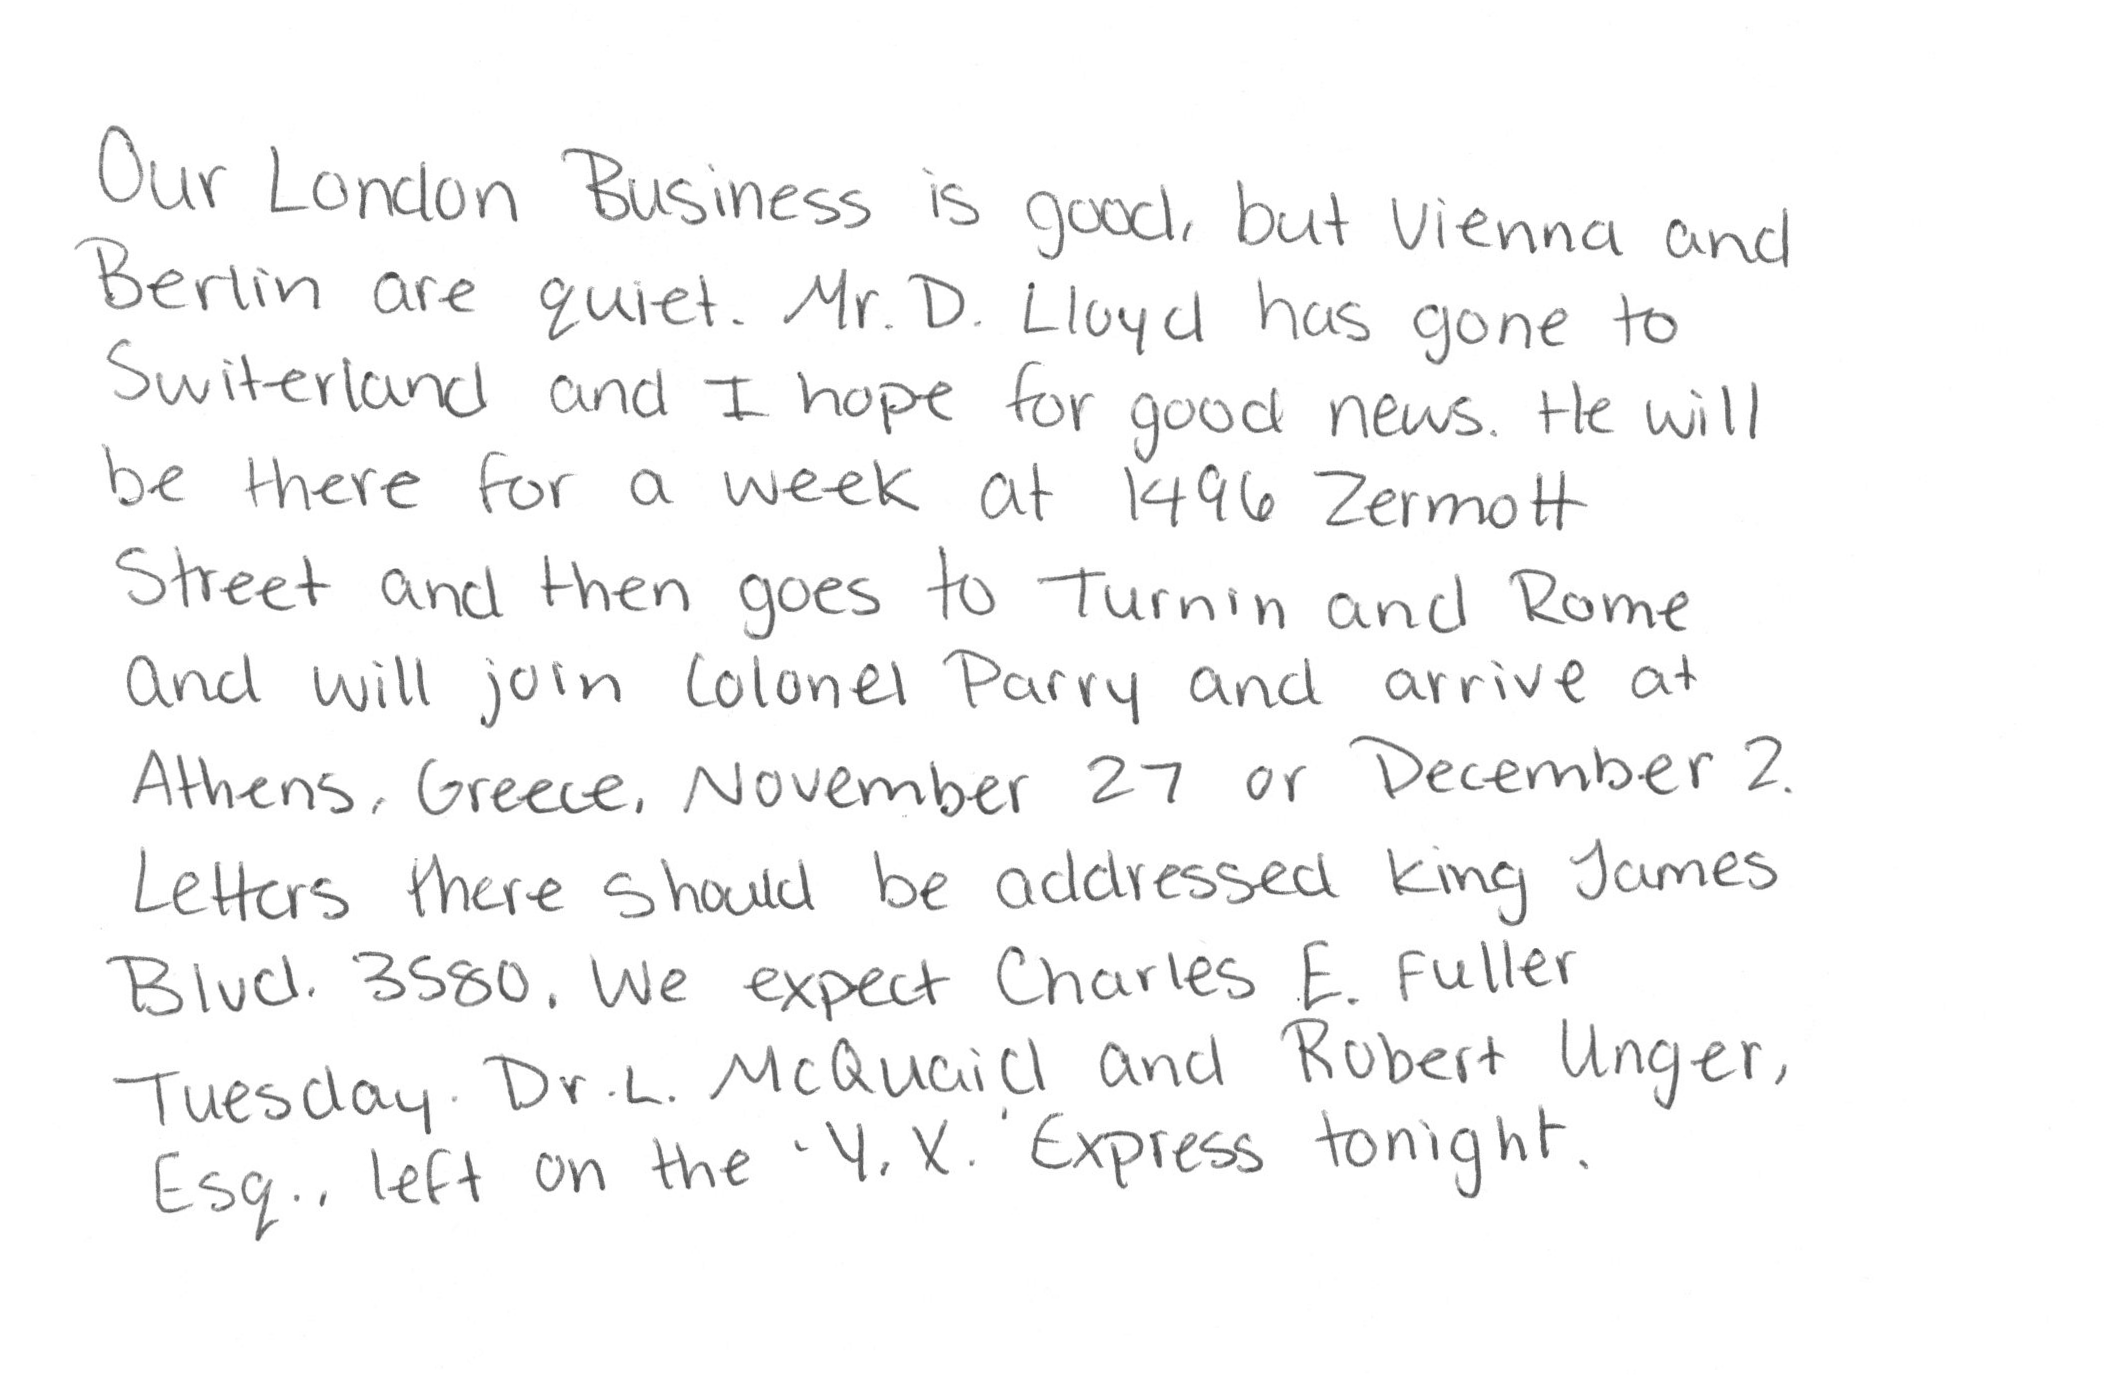 Our London Business is good, but Vienna and
Berlin are quiet. Mr. D. Lloyd has gone to
Switerland and I hope for good news. He will
be there for a week at 1496 Zermott
Street and then goes to Turnin and Rome
and will join Colonel Parry and arrive at
Athens, Greece, November 27 or December 2.
Letters there should be addressed King James
Blvd. 3580. We expect Charles E. Fuller
Tuesday. Dr. L. McQuaid and Robert Unger,
Esq., left on the 'Y.X.' Express tonight.